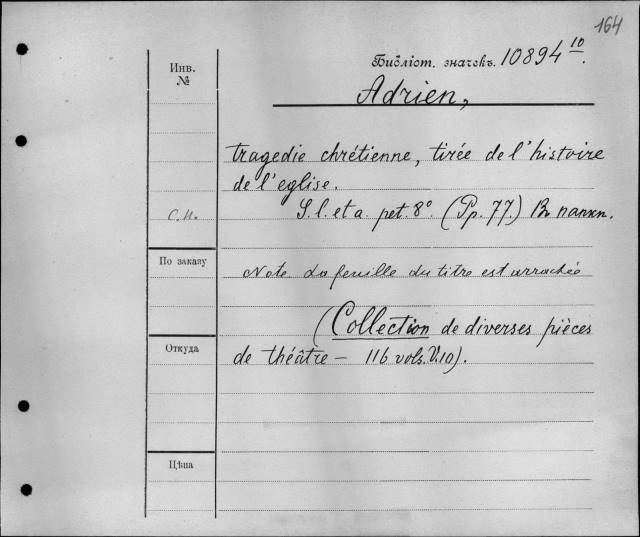 164
Библіот. значекъ. 10894 10.
Инв.
№
Adrien,
tragedie chrétienne, tirée de l'histoire
de l'eglise.
С.Н.
S. l. et a. pet. 8° (Pp. 77.) Въ папкѣ.
По заказу
Note La feuille du titre est arrachée
(Collection de diverses pièces
Откуда
de théâtre — 116 vols. V. 10).
Цѣна